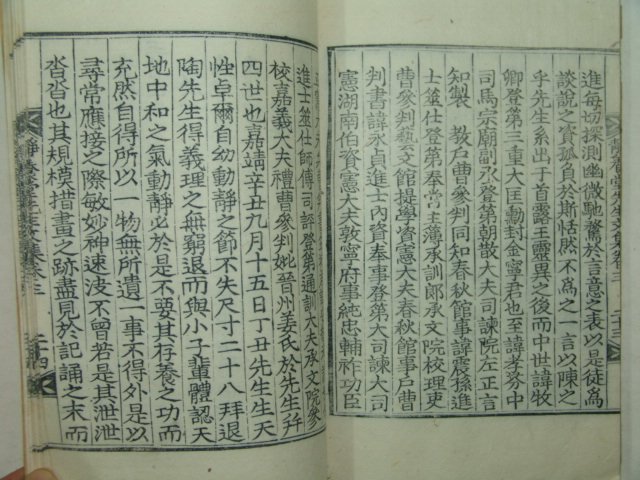 進每切探測幽微馳騖於言意之表以是徒爲
談說之資孤負於斯恬然不爲之一言以陳之
乎先生系出于首露王靈異之後而中世諱牧
卿登第三重大匡勳封金寧君也至諱孝芬中
司馬宗廟副丞登第朝散大夫司諫院左正言
知製教戶曹參判同知春秋館事諱震孫進
士筮仕登第奉常主薄承訓郎承文院校理吏
曹參判藝文館提學資憲大夫春秋館事戶曹
判書諱永貞進士內資奉事登第大夫司諫大司
憲湖南伯資憲大夫敦寧府事純忠輔祚功臣
進士筮仕師傅司評登第通訓大夫承文院參
校嘉義大夫禮曹參判妣晉州姜氏於先生幷
四世也嘉靖辛丑九月十五日丁丑先生生天
性卓爾自幼動靜之節不失尺寸二十八拜退
陶先生得義理之無窮退而與小子輩體認天
地中和之氣動靜必於是不要其存養之功而
充然自得所以一物無所遺一事不得外是以
尋常應接之際敏妙神速沒不曾若是其泄泄
沓沓也其規模措畫之跡盡見於記誦之末而